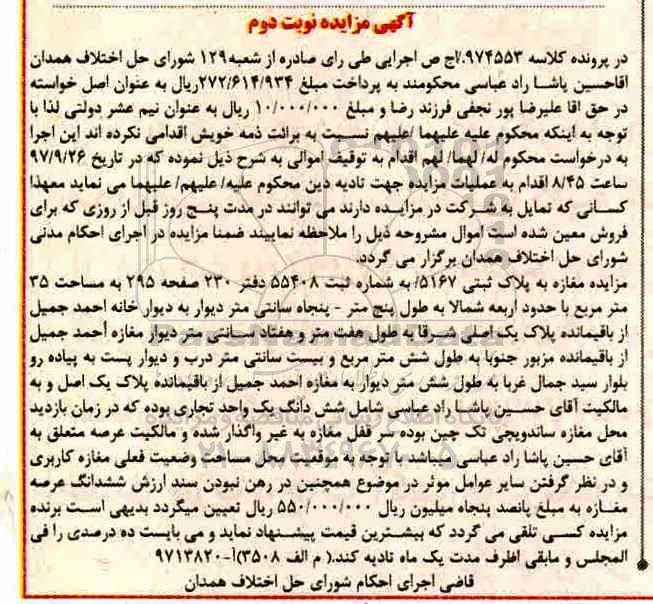 آگهی مزایده نوبت دوم
در پرونده کلاسه ۹۷۴۵۵۳/.اج ص اجرایی طی رای صادره از شعبه۱۲۹ شورای حل اختلاف همدان
اقاحسین پاشا راد عباسی محکومند به پرداخت مبلغ ۲۷۲/۶۱۴/۹۳۴ریال به عنوان اصل خواسته
در حق اقا علیرضا پور نجفی فرزند رضا و مبلغ ۱۰/۰۰۰/۰۰۰ ریال به عنوان نیم عشر دولتی لذا با
توجه به اینکه محکوم علیه علیهما /علیهم نسبت به برائت ذمه خویش اقدامی نکرده اند این اجرا
به درخواست محکوم له/ لهما/ لهم اقدام به توقیف اموالی به شرح ذیل نموده که در تاریخ ۹۷/۹/۲۶
ساعت ۸/۴۵ اقدام به عملیات مزایده جهت تادیه دین محکوم علیه/ علیهم/ علیهما می نماید معهذا
کسانی که تمایل به شرکت در مزایده دارند می توانند در مدت پنج روز قبل از روزی که برای
فروش معین شده است اموال مشروحه ذیل را ملاحظه نماییند ضمنا مزایده در اجرای احکام مدنی
شورای حل اختلاف همدان برگزار می گردد.
مزایده مغازه به پلاک ثبتی ۵۱۶۷/ به شماره ثبت ۵۵۴۰۸ دفتر ۲۳۰ صفحه ۲۹۵ به مساحت ۳۵
متر مربع با حدود اربعه شمالا به طول پنج متر - پنجاه سانتی متر دیوار به دیوار خانه احمد جمیل
از باقیمانده پلاک یک اصلی شرقا به طول هفت متر و هفتاد سانتی متر دیوار مغازه احمد جمیل
از باقیمانده مزبور جنوبا به طول شش متر مربع و بیست سانتی متر درب و دیوار پست به پیاده رو
بلوار سید جمال غربا به طول شش متر دیوار به مغازه احمد جمیل از باقیمانده پلاک یک اصل و به
مالکیت آقای حسین پاشا راد عباسی شامل شش دانگ یک واحد تجاری بوده که در زمان بازدید
محل مغازه ساندویچی تک چین بوده سر قفل مغازه به غیر واگذار شده و مالکیت عرصه متعلق به
آقای حسین پاشا راد عباسی میباشد با توجه به موقعیت محل مساحت وضعیت فعلی مغازه کاربری
و در نظر گرفتن سایر عوامل موثر در موضوع همچنین در رهن نبودن سند ارزش ششدانگ عرصه
مغازه به مبلغ پانصد پنجاه میلیون ریال ۵۵۰/۰۰۰/۰۰۰ ریال تعیین میگردد بدیهی است برنده
مزایده کسی تلقی می گردد که بیشترین قیمت پیشنهاد نماید و می بایست ده درصدی را فی
المجلس و مابقی اظرف مدت یک ماه تادیه کند.( م الف ۳۵۰۸)آ-۹۷۱۳۸۲۰
قاضی اجرای احکام شورای حل اختلاف همدان